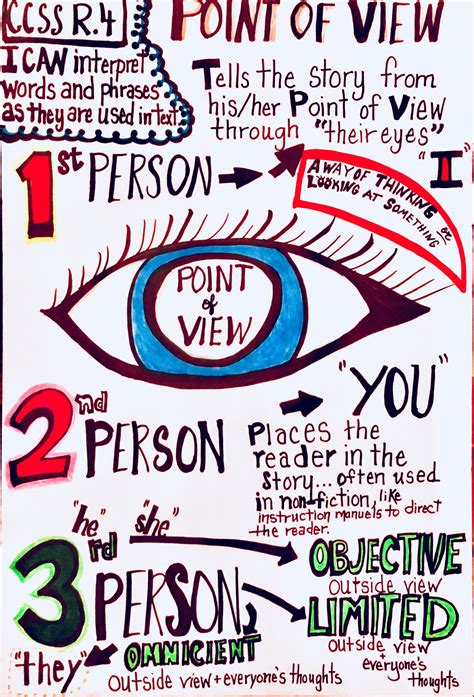 CCSS R.4
POINT OF VIEW
I CAN interpret
words and phrases
as they are used in text.
Tells the story from
his/her Point of View
through "their eyes"
1st PERSON
"I"
A WAY OF THINKING or
LOOKING AT SOMETHING
POINT
of
VIEW
2nd PERSON
"YOU"
Places the
reader in the
story... often used
in non-fiction, like
instruction manuels to direct
the reader.
"he" "she"
3rd PERSON
OBJECTIVE
Outside view
LIMITED
Outside view
+
everyone's
thoughts
"they"
OMNICIENT
Outside view + everyone's thoughts